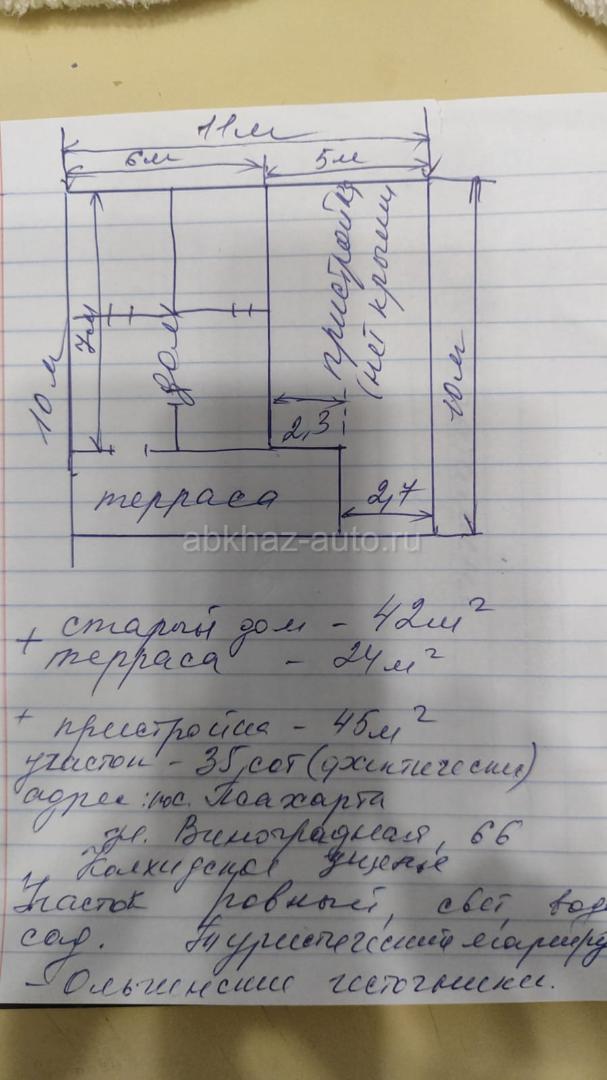 11м
6м
5м
7м
10м
дом
пристройка
(нет крыши
10м
2,3
2,7
терраса
abkhaz-auto.ru
+ старый дом - 42м²
терраса - 24м²
+ пристройка - 45м²
участок - 35 сот (фактически)
адрес: пос. Псахарта
ул. Виноградная, 66
Колхидское ущелье
Участок ровный, свет, вода
сад. Туристический маршру
- Ольгинские источники.